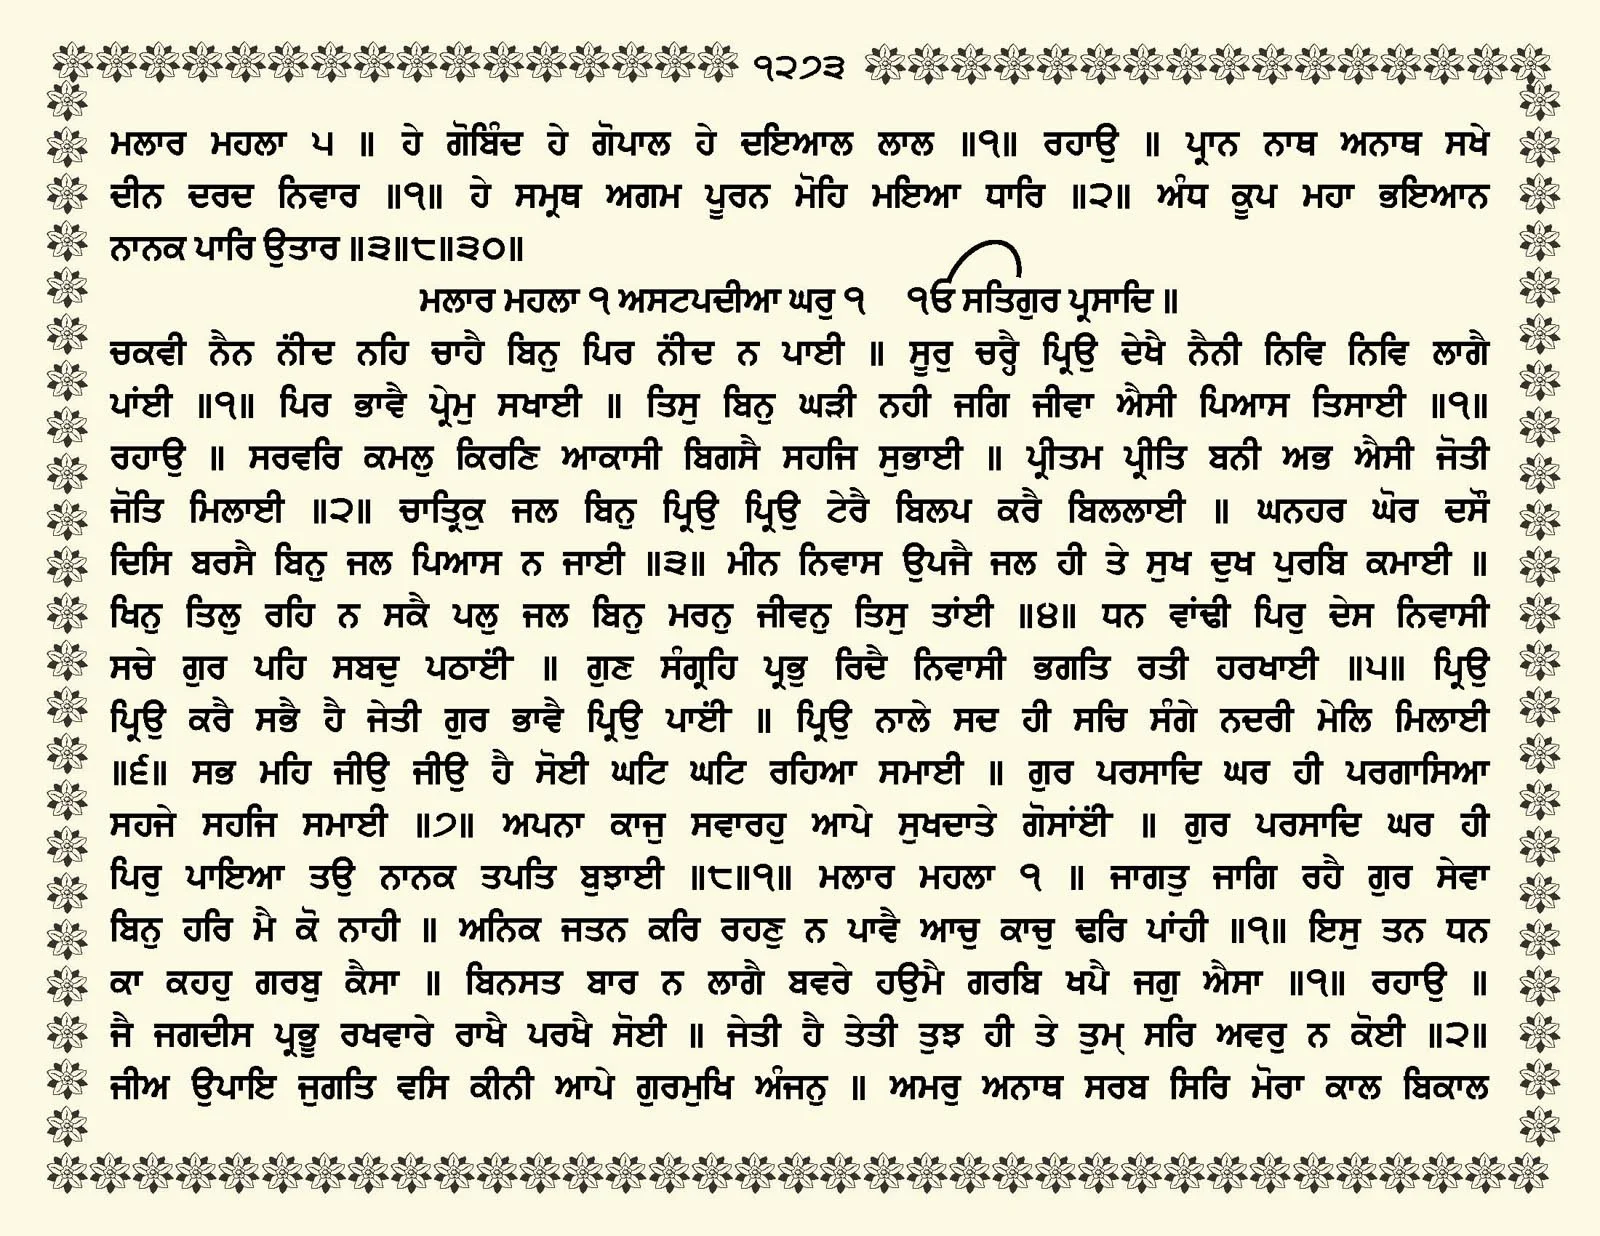 ੧੨੭੩
ਮਲਾਰ ਮਹਲਾ ੫ ॥ ਹੇ ਗੋਬਿੰਦ ਹੇ ਗੋਪਾਲ ਹੇ ਦਇਆਲ ਲਾਲ ॥੧॥ ਰਹਾਉ ॥ ਪ੍ਰਾਨ ਨਾਥ ਅਨਾਥ ਸਖੇ
ਦੀਨ ਦਰਦ ਨਿਵਾਰ ॥੧॥ ਹੇ ਸਮ੍ਰਥ ਅਗਮ ਪੂਰਨ ਮੋਹਿ ਮਇਆ ਧਾਰਿ ॥੨॥ ਅੰਧ ਕੂਪ ਮਹਾ ਭਇਆਨ
ਨਾਨਕ ਪਾਰਿ ਉਤਾਰ ॥੩॥੮॥੩੦॥
ਮਲਾਰ ਮਹਲਾ ੧ ਅਸਟਪਦੀਆ ਘਰੁ ੧ ੴ ਸਤਿਗੁਰ ਪ੍ਰਸਾਦਿ ॥
ਚਕਵੀ ਨੈਨ ਨੀਂਦ ਨਹਿ ਚਾਹੈ ਬਿਨੁ ਪਿਰ ਨੀਂਦ ਨ ਪਾਈ ॥ ਸੂਰੁ ਚਰ੍ਹੈ ਪ੍ਰਿਉ ਦੇਖੈ ਨੈਨੀ ਨਿਵਿ ਨਿਵਿ ਲਾਗੈ
ਪਾਂਈ ॥੧॥ ਪਿਰ ਭਾਵੈ ਪ੍ਰੇਮੁ ਸਖਾਈ ॥ ਤਿਸੁ ਬਿਨੁ ਘੜੀ ਨਹੀ ਜਗਿ ਜੀਵਾ ਐਸੀ ਪਿਆਸ ਤਿਸਾਈ ॥੧॥
ਰਹਾਉ ॥ ਸਰਵਰਿ ਕਮਲੁ ਕਿਰਣਿ ਆਕਾਸੀ ਬਿਗਸੈ ਸਹਜਿ ਸੁਭਾਈ ॥ ਪ੍ਰੀਤਮ ਪ੍ਰੀਤਿ ਬਨੀ ਅਭ ਐਸੀ ਜੋਤੀ
ਜੋਤਿ ਮਿਲਾਈ ॥੨॥ ਚਾਤ੍ਰਿਕੁ ਜਲ ਬਿਨੁ ਪ੍ਰਿਉ ਪ੍ਰਿਉ ਟੇਰੈ ਬਿਲਪ ਕਰੈ ਬਿਲਲਾਈ ॥ ਘਨਹਰ ਘੋਰ ਦਸੌ
ਦਿਸਿ ਬਰਸੈ ਬਿਨੁ ਜਲ ਪਿਆਸ ਨ ਜਾਈ ॥੩॥ ਮੀਨ ਨਿਵਾਸ ਉਪਜੈ ਜਲ ਹੀ ਤੇ ਸੁਖ ਦੁਖ ਪੁਰਬਿ ਕਮਾਈ ॥
ਖਿਨੁ ਤਿਲੁ ਰਹਿ ਨ ਸਕੈ ਪਲੁ ਜਲ ਬਿਨੁ ਮਰਨੁ ਜੀਵਨੁ ਤਿਸੁ ਤਾਂਈ ॥੪॥ ਧਨ ਵਾਂਢੀ ਪਿਰੁ ਦੇਸ ਨਿਵਾਸੀ
ਸਚੇ ਗੁਰ ਪਹਿ ਸਬਦੁ ਪਠਾਈਂ ॥ ਗੁਣ ਸੰਗ੍ਰਹਿ ਪ੍ਰਭੁ ਰਿਦੈ ਨਿਵਾਸੀ ਭਗਤਿ ਰਤੀ ਹਰਖਾਈ ॥੫॥ ਪ੍ਰਿਉ
ਪ੍ਰਿਉ ਕਰੈ ਸਭੈ ਹੈ ਜੇਤੀ ਗੁਰ ਭਾਵੈ ਪ੍ਰਿਉ ਪਾਈਂ ॥ ਪ੍ਰਿਉ ਨਾਲੇ ਸਦ ਹੀ ਸਚਿ ਸੰਗੇ ਨਦਰੀ ਮੇਲਿ ਮਿਲਾਈ
॥੬॥ ਸਭ ਮਹਿ ਜੀਉ ਜੀਉ ਹੈ ਸੋਈ ਘਟਿ ਘਟਿ ਰਹਿਆ ਸਮਾਈ ॥ ਗੁਰ ਪਰਸਾਦਿ ਘਰ ਹੀ ਪਰਗਾਸਿਆ
ਸਹਜੇ ਸਹਜਿ ਸਮਾਈ ॥੭॥ ਅਪਨਾ ਕਾਜੁ ਸਵਾਰਹੁ ਆਪੇ ਸੁਖਦਾਤੇ ਗੋਸਾਂਈਂ ॥ ਗੁਰ ਪਰਸਾਦਿ ਘਰ ਹੀ
ਪਿਰੁ ਪਾਇਆ ਤਉ ਨਾਨਕ ਤਪਤਿ ਬੁਝਾਈ ॥੮॥੧॥ ਮਲਾਰ ਮਹਲਾ ੧ ॥ ਜਾਗਤੁ ਜਾਗਿ ਰਹੈ ਗੁਰ ਸੇਵਾ
ਬਿਨੁ ਹਰਿ ਮੈ ਕੋ ਨਾਹੀ ॥ ਅਨਿਕ ਜਤਨ ਕਰਿ ਰਹਣੁ ਨ ਪਾਵੈ ਆਚੁ ਕਾਚੁ ਢਰਿ ਪਾਂਹੀ ॥੧॥ ਇਸੁ ਤਨ ਧਨ
ਕਾ ਕਹਹੁ ਗਰਬੁ ਕੈਸਾ ॥ ਬਿਨਸਤ ਬਾਰ ਨ ਲਾਗੈ ਬਵਰੇ ਹਉਮੈ ਗਰਬਿ ਖਪੈ ਜਗੁ ਐਸਾ ॥੧॥ ਰਹਾਉ ॥
ਜੈ ਜਗਦੀਸ ਪ੍ਰਭੂ ਰਖਵਾਰੇ ਰਾਖੈ ਪਰਖੈ ਸੋਈ ॥ ਜੇਤੀ ਹੈ ਤੇਤੀ ਤੁਝ ਹੀ ਤੇ ਤੁਮ੍ ਸਰਿ ਅਵਰੁ ਨ ਕੋਈ ॥੨॥
ਜੀਅ ਉਪਾਇ ਜੁਗਤਿ ਵਸਿ ਕੀਨੀ ਆਪੇ ਗੁਰਮੁਖਿ ਅੰਜਨੁ ॥ ਅਮਰੁ ਅਨਾਥ ਸਰਬ ਸਿਰਿ ਮੋਰਾ ਕਾਲ ਬਿਕਾਲ